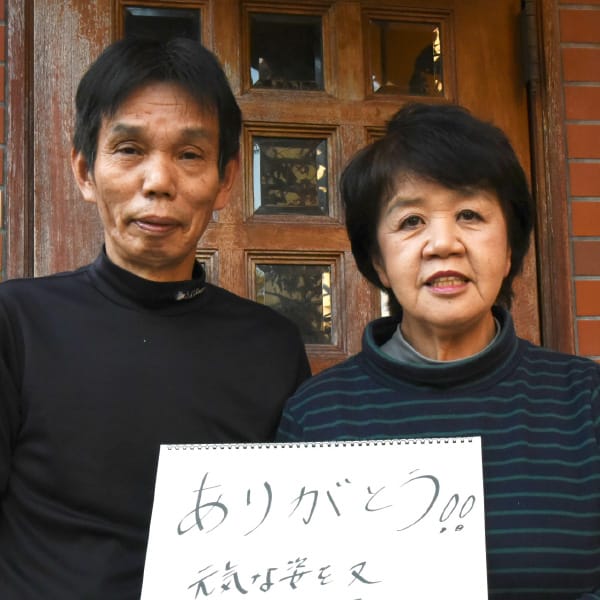 ありがとう!!
元気な姿を又